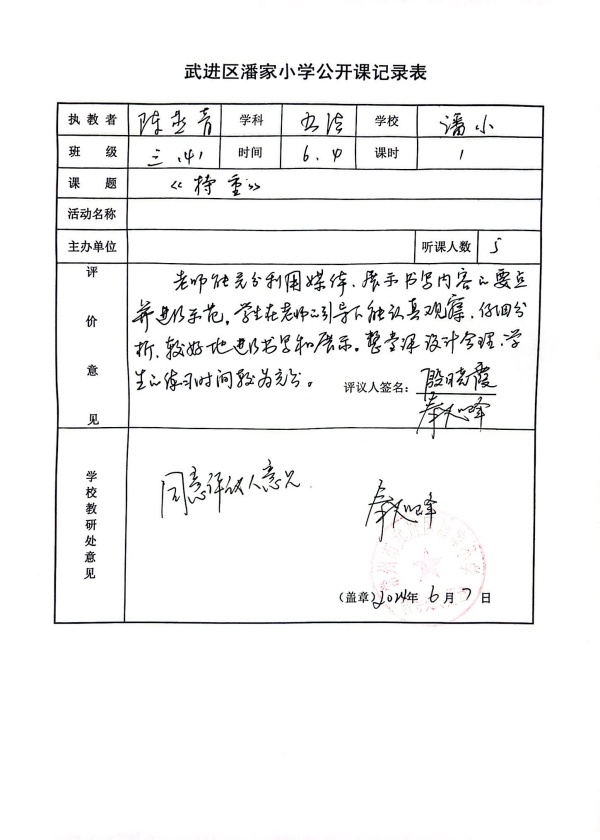 武进区潘家小学公开课记录表
执教者 陈 青 学科 书法 学校 潘小
班级 三.(4) 时间 6.4 课时 1
课题 《持重》
活动名称
主办单位 听课人数 5
评价意见
老师能充分利用媒体,展示书写内容的要点
并进行示范。学生在老师的引导下能认真观察,仔细分
析,较好地进行书写和展示。整堂课设计合理,学
生的练习时间较为充分。 评议人签名:殷晓霞
秦 峰
学校教研处意见
同意评议人意见. 秦 峰
(盖章)2024年6月7日